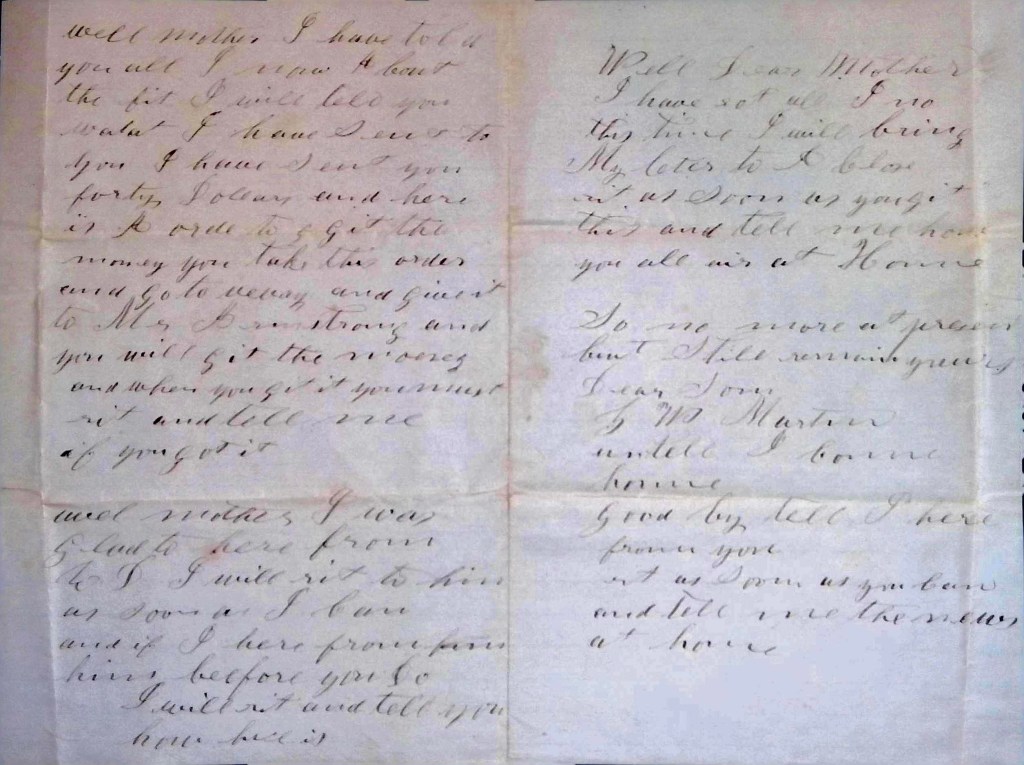 well mother I have told
you all I now A bout
the fit I will tell you
watat I have Sent to
you I have Sent you
forty Dolears and here
is A orde to g git the
money you take this order
and go to vevay and give it
to Mr Armstrong and
you will git the money
and when you git it you must
rit and tell me
if you got it
well mother I was
glad to here from
I will rit to him
as Soon as I Can
and if I here from
him beefore you Do
I will rit and tell you
how hee is
Well Dear Mother
I have rot all I no
this time I will bring
My leter to A Close
rit as Soon as you git
this and tell me how
you all air at Home
So no more at presen
but Still remain yours
Dear Son
G W Martin
untell I Come
home
good by tell I here
from you
rit as Soon as you Can
and tell me the news
at home